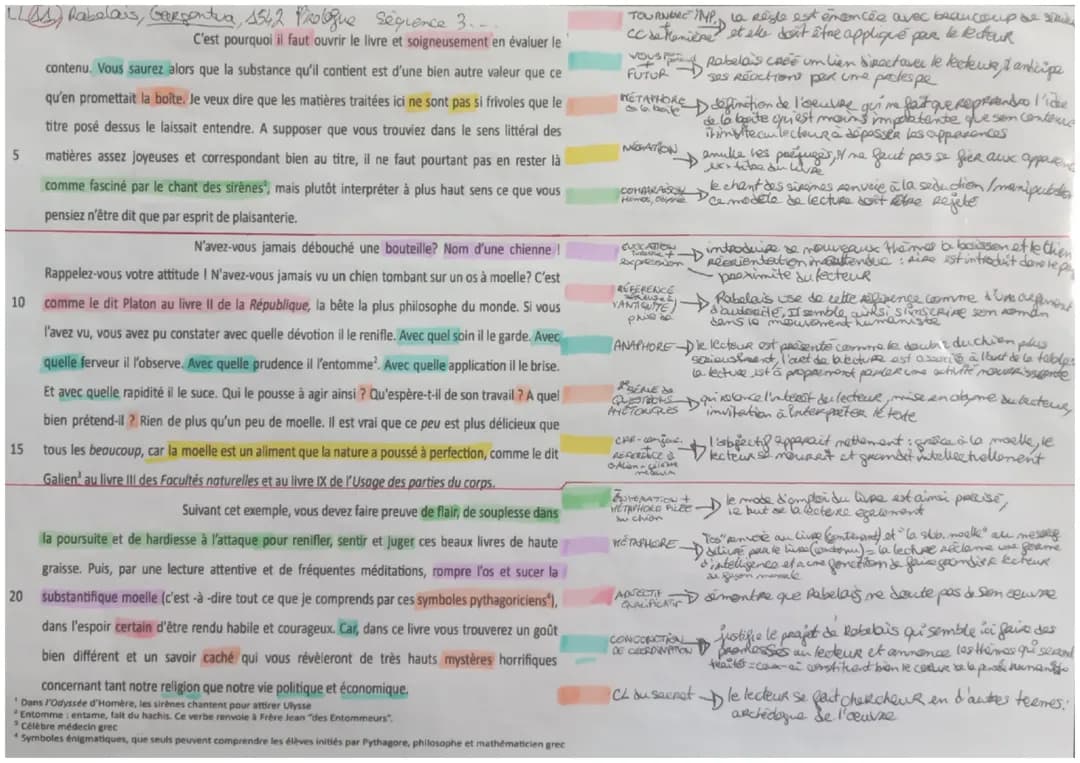 LL(11) Rabelais, Gargantua, 1542 Prologue Séquence 3...
C'est pourquoi il faut ouvrir le livre et soigneusement en évaluer le
contenu. Vous saurez alors que la substance qu'il contient est d'une bien autre valeur que ce
qu'en promettait la boîte. Je veux dire que les matières traitées ici ne sont pas si frivoles que le
titre posé dessus le laissait entendre. A supposer que vous trouviez dans le sens littéral des
5 matières assez joyeuses et correspondant bien au titre, il ne faut pourtant pas en rester là
comme fasciné par le chant des sirènes¹, mais plutôt interpréter à plus haut sens ce que vous
pensiez n'être dit que par esprit de plaisanterie.
N'avez-vous jamais débouché une bouteille? Nom d'une chienne !
Rappelez-vous votre attitude ! N'avez-vous jamais vu un chien tombant sur un os à moelle? C'est
10 comme le dit Platon au livre II de la République, la bête la plus philosophe du monde. Si vous
l'avez vu, vous avez pu constater avec quelle dévotion il le renifle. Avec quel soin il le garde. Avec
quelle ferveur il l'observe. Avec quelle prudence il l'entomme². Avec quelle application il le brise.
Et avec quelle rapidité il le suce. Qui le pousse à agir ainsi ? Qu'espère-t-il de son travail ? A quel
bien prétend-il ? Rien de plus qu'un peu de moelle. Il est vrai que ce peu est plus délicieux que
15 tous les beaucoup, car la moelle est un aliment que la nature a poussé à perfection, comme le dit
Galien³ au livre III des Facultés naturelles et au livre IX de l'Usage des parties du corps.
Suivant cet exemple, vous devez faire preuve de flair, de souplesse dans
la poursuite et de hardiesse à l'attaque pour renifler, sentir et juger ces beaux livres de haute
graisse. Puis, par une lecture attentive et de fréquentes méditations, rompre l'os et sucer la
20 substantifique moelle (c'est -à -dire tout ce que je comprends par ces symboles pythagoriciens⁴),
dans l'espoir certain d'être rendu habile et courageux. Car, dans ce livre vous trouverez un goût
bien différent et un savoir caché qui vous révèleront de très hauts mystères horrifiques
concernant tant notre religion que notre vie politique et économique.
¹ Dans l'Odyssée d'Homère, les sirènes chantent pour attirer Ulysse
² Entomme : entame, fait du hachis. Ce verbe renvoie à Frère Jean "des Entommeurs".
³ Célèbre médecin grec
⁴ Symboles énigmatiques, que seuls peuvent comprendre les élèves initiés par Pythagore, philosophe et mathématicien grec
TOURNURE IMP. + CC de manière → la règle est énoncée avec beaucoup de
et elle doit être appliqué par le lecteur
VOUS + FUTUR → Rabelais créé un lien direct avec le lecteur, il anticipe
ses réactions par une prolepse
MÉTAPHORE de la boîte → définition de l'oeuvre qui ne fait que reprendre l'idée
de la boîte qui est moins importante que son contenu
il invite au lecteur à dépasser les apparences
NÉGATION → annule les préjugés, il ne faut pas se fier aux
titre du livre
COMPARAISON → le chant des sirènes renvoie à la séduction / manipulation
ce modèle de lecture doit être rejeté
EVOCATION + expression → introduire de nouveaux thèmes la boisson et le chien
réorientation inattendue : rire est introduit dans le
proximité du lecteur
RÉFÉRENCE → Rabelais use de cette référence comme d'un argument
d'autorité, Il semble ainsi s'inscrire son roman
dans le mouvement humaniste
ANAPHORE → le lecteur est présenté comme le double du chien plus
sérieusement, l'art de la lecture est associé à l'art de la table,
la lecture est à proprement parler une activité nourrissante
SÉRIE DE QUESTIONS RHÉTORIQUES → qui relance l'intérêt du lecteur, mise en abyme du lecteur,
invitation à interpréter le texte
CAR - conjonc. RÉFÉRENCE à → l'objectif apparait nettement : grâce à la moelle, le
lecteur se nourrit et grandit intellectuellement
ÉNUMÉRATION + MÉTAPHORE FILÉE du chien → le mode d'emploi du livre est ainsi précisé,
le but de la lecture également
MÉTAPHORE → "l'os" renvoie au livre (contenant) et "la sub. moelle" au message
délivré par le livre (contenu) = la lecture réclame une forme
d'intelligence et a une fonction de faire grandir le lecteur
de façon morale
ADJECTIF QUALIFICATIF → démontre que Rabelais ne doute pas de son oeuvre
CONJONCTION DE COORDINATION → justifie le projet de Rabelais qui semble ici faire des
promesses au lecteur et annonce les thèmes qui seront
traités = ceux ci constituent bien le coeur de la pensée humaniste
CL du secret → le lecteur se fait chercheur en d'autres termes :
archéologue de l'oeuvre